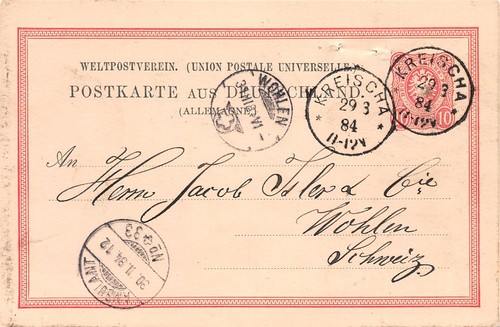 WELTPOSTVEREIN. (UNION POSTALE UNIVERSELLE.)
POSTKARTE AUS DEUTSCHLAND.
(ALLEMAGNE.)
* KREISCHA *
29 3
84
11-12V
* KREISCHA *
29 3
84
11-12V
10
WOHLEN
An
Herrn Jacob Isler & Cie
Wohlen
Schweiz
No 33